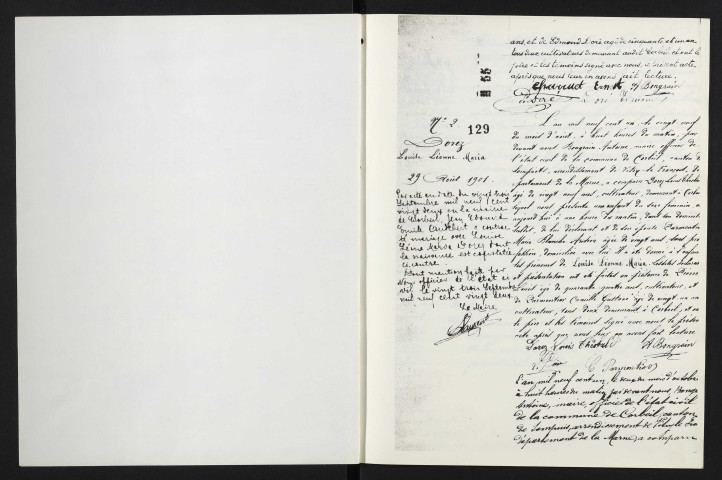 ans, et de Edmond Doré agé de cinquante et un an
tous deux cultivateurs demeurant audit Corbeil et ont le
père et les témoins signé avec nous, le présent acte
après que nous leur en avons fait lecture.
A Bongrain
Doré
N° 2
129
Dorez
Louise Léonne Maria
29 Août 1901
Par acte en date du vingt trois
Septembre mil neuf cent
vingt deux en la mairie
de Corbeil, Jean Edouard
Emile a contrac
té mariage avec Louise
Léonne Maria Dorez dont
la naissance est
ci contre.
Dont mention faite par
Nous officier de l'état ci
vil le vingt trois Septembre
mil neuf cent vingt deux
Le Maire
L'an mil neuf cent un, le vingt neuf
du mois d'août, à huit heures du matin, par
devant nous Bongrain Antoine, maire officier de
l'état civil de la commune de Corbeil, canton de
Sompuis, arrondissement de Vitry-le-François, dé
partement de la Marne, a comparu Dorez Louis
âgé de vingt neuf ans, cultivateur, demeurant à Corbeil
lequel nous présente un enfant du sexe féminin né
aujourd'hui à une heure du matin, dans son domicile
de lui déclarant et de son épouse Parmentier
Marie Blanche âgée de vingt ans, sans pro
fession, domiciliée avec lui et a donné à l'enfant
les prénoms de Louise Léonne Maria. Lesdites déclaration
et présentation ont été faites en présence de
âgé de quarante quatre ans, cultivateur, et
de Parmentier Camille Gustave âgé de vingt un an
cultivateur, tous deux demeurant à Corbeil, et ont
le père et les témoins signé avec nous le présent
acte après que nous leur en avons fait lecture
Dorez Louis
A Bongrain
C Parmentier
L'an mil neuf cent un, le deux du mois d'octobre
à huit heures du matin, par devant nous Bongrain
Antoine, maire, officier de l'état civil
de la commune de Corbeil, canton
de Sompuis, arrondissement de Vitry le Fra
département de la Marne, a comparu